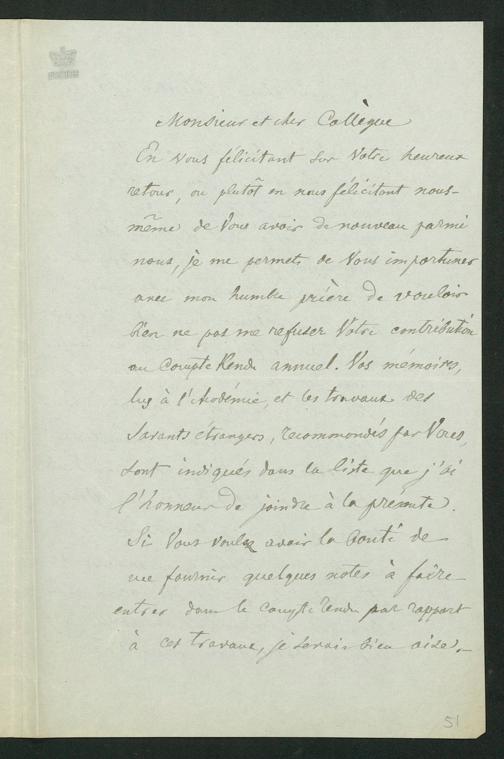 Monsieur et cher Collègue
En vous félicitant sur Votre heureux
retour, ou plutôt en nous félicitant nous-
même de Vous avoir de nouveau parmi
nous, je me permets de Vous importuner
avec mon humble prière de vouloir
bien ne pas me refuser Votre contribution
au Compte Rendu annuel. Vos mémoires,
lus à l'Académie, et les travaux des
Savants étrangers, recommandés par Vous,
sont indiqués dans la liste que j'ai
l'honneur de joindre à la présente.
Si Vous voulez avoir la bonté de
me fournir quelques notes à faire
entrer dans le compte rendu par rapport
à ces travaux, je serais bien aise.
51